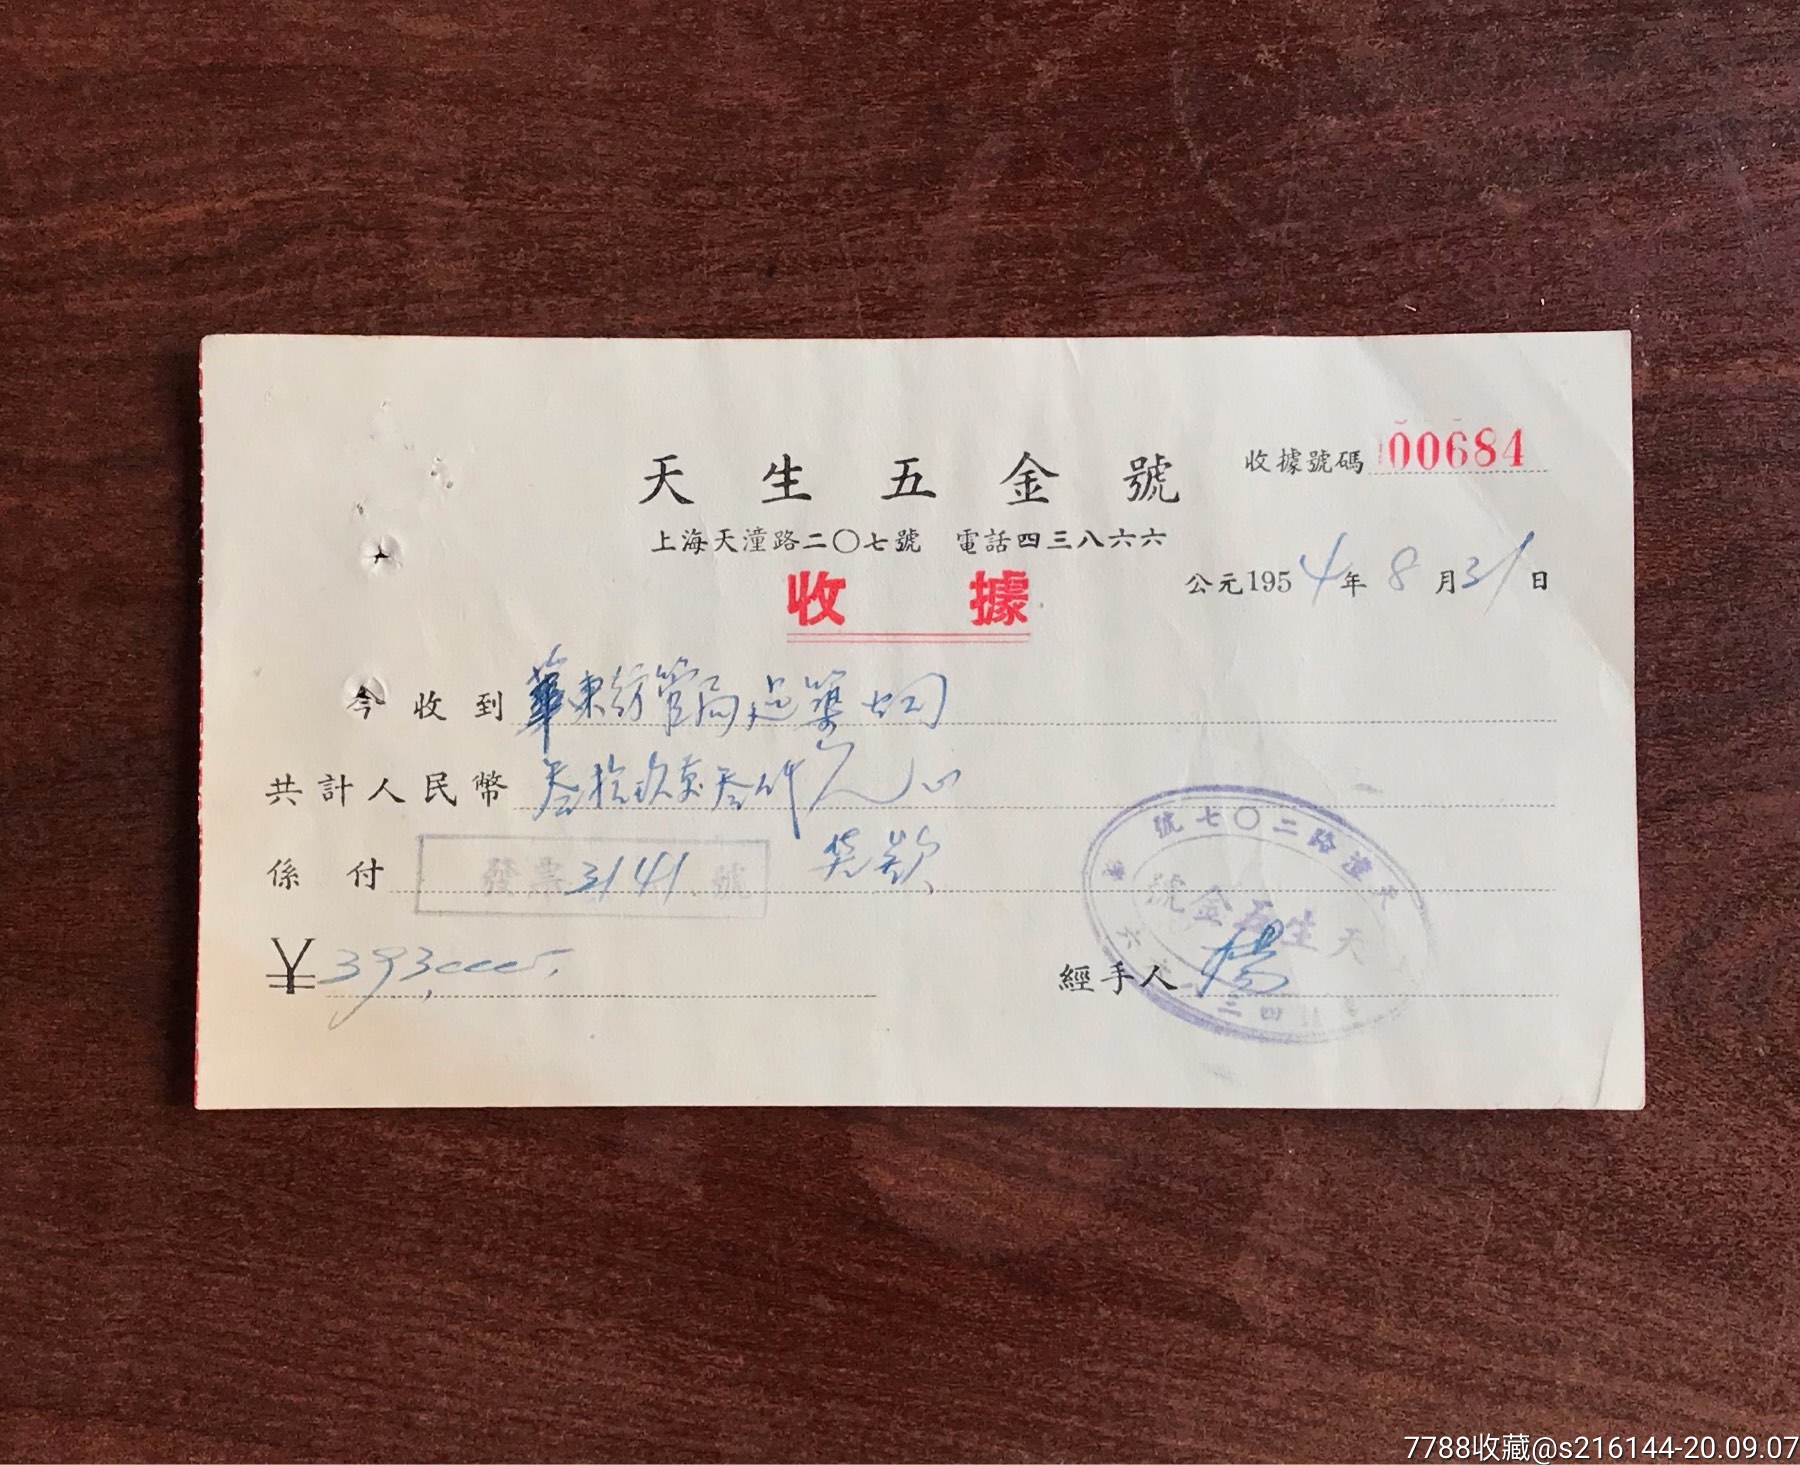 收據號碼 00684
天生五金號
上海天潼路二〇七號 電話四三八六六
公元1954年8月31日
收據
今收到 華東紡管局建築公司
共計人民幣 叁拾玖萬叁仟元正
係付 發票3141號 貨款
¥393,000
經手人 楊
號七〇二路潼天
號金五生天
7788收藏@s216144-20.09.07